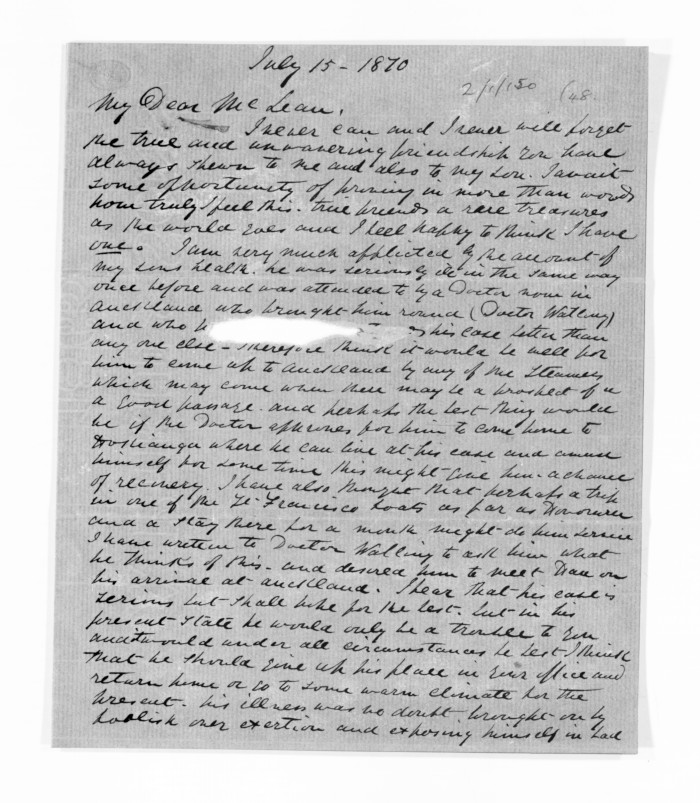 July 15 - 1870
2/1/150 (48.
My Dear McLean.
I never can and I never will forget
the true and unwavering friendship you have
always shewn to me and also to my son. I await
some opportunity of proving in more than words
how truly I feel this. true friends a rare treasures
as the world goes and I feel happy to think I have
one. I am very much afflicted by the account of
my sons health. he was seriously ill in the same way
once before and was attended to by a Doctor now in
Auckland who brought him round (Doctor Watling)
and who his case better than
any one else - therefore think it would be well for
him to come up to Auckland by any of the Steamers
which may come when there may be a prospect of a
a good passage. and perhaps the best thing would
be if the Doctor approves for him to come home to
Hokianga where he can live at his ease and amuse
himself for some time this might give him a chance
of recovery. I have also thought that perhaps a trip
in one of the St Francisco boats as far as Honolulu
and a stay there for a month might do him service
I have written to Doctor Watling to ask him what
he thinks of this. and desired him to meet on
his arrival at Auckland. I hear that his case is
serious but shall hope for the best. but in his
present state he would only be a trouble to you
and it would under all circumstances be best I think
that he should give up his place in your office and
return home or go to some warm climate for the
present. his illness was no doubt brought on by
foolish over exertion and exposing himself in bad